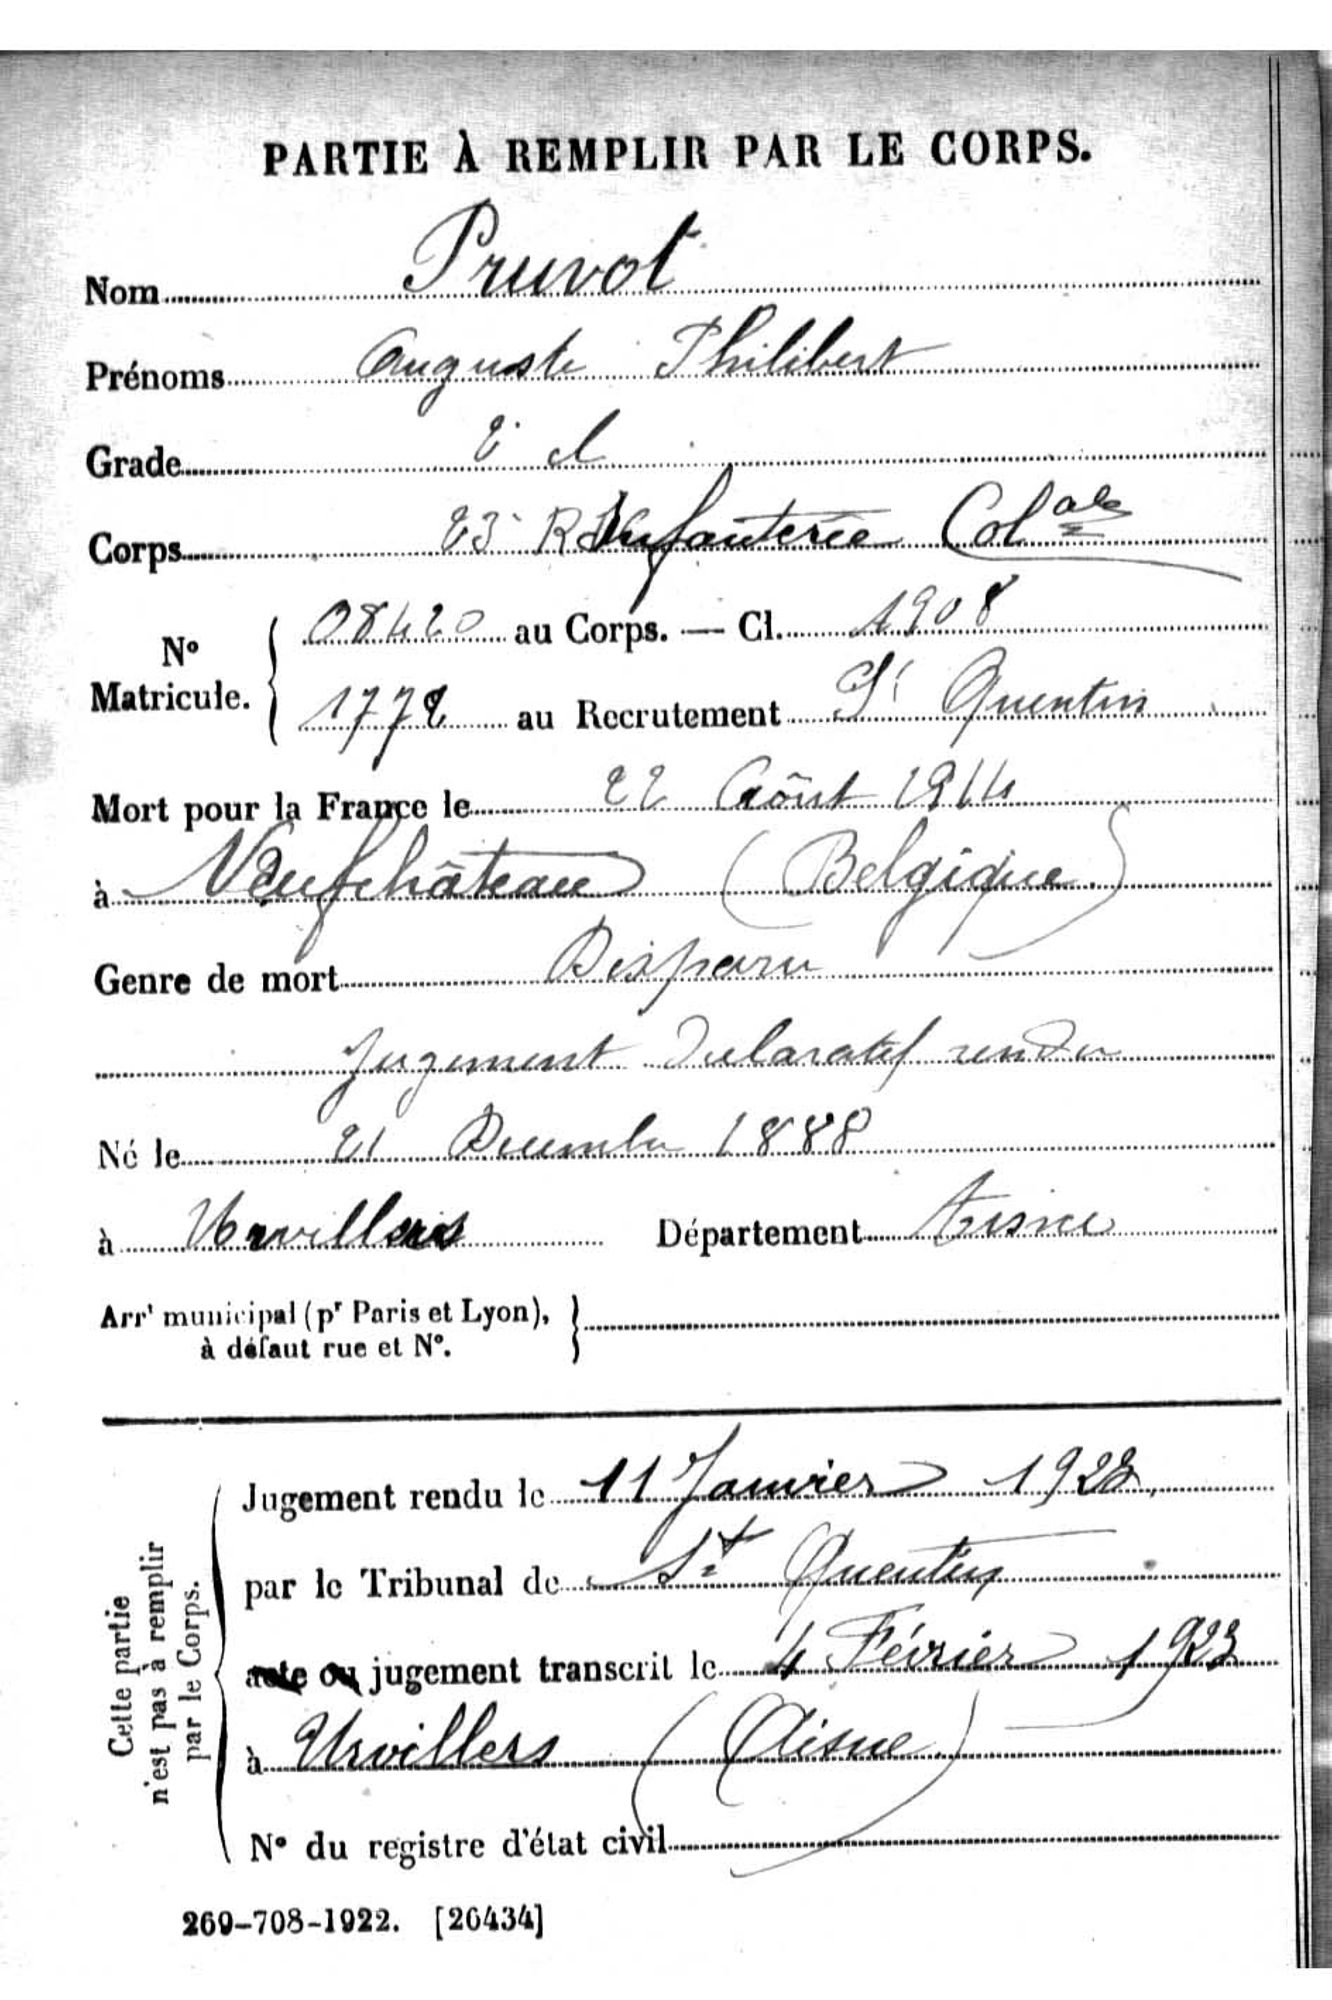 PARTIE À REMPLIR PAR LE CORPS.
Nom Pruvot
Prénoms Auguste Philibert
Grade 2e cl
Corps 23e R Infanterie Colale
No Matricule. 08420 au Corps. — Cl. 1908
1772 au Recrutement St Quentin
Mort pour la France le 22 Août 1914
à Neufchâteau (Belgique)
Genre de mort Disparu
Jugement Déclaratif rendu
Né le 21 Decembre 1888
à Urvillers Département Aisne
Arrt municipal (pr Paris et Lyon),
à défaut rue et No.
Cette partie
n'est pas à remplir
par le Corps.
Jugement rendu le 11 Janvier 1923
par le Tribunal de St Quentin
acte ou jugement transcrit le 4 Février 1923
à Urvillers (Aisne)
No du registre d'état civil
269-708-1922. [26434]